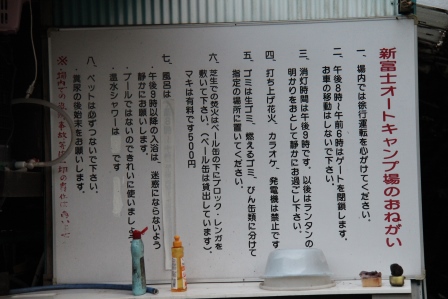 新富士オートキャンプ場のおねがい
一、場内では徐行運転を心がけてください。
二、午後8時〜午前6時はゲートを閉鎖します。
お車の移動はしないで下さい。
三、消灯時間は午後9時です。以後はランタンの
明かりをおとして静かにお過ごし下さい。
四、打ち上げ花火、カラオケ、発電機は禁止です
五、ゴミは生ゴミ、燃えるゴミ、びん缶類に分けて
指定の場所に置いてください。
六、芝生での焚火はベール缶の下にブロック・レンガを
敷いて下さい。(ベール缶は貸出しています)。
マキは有料です500円
七、風呂は
・午後9時以降の入浴は、迷惑にならないよう
静かにお願いします。
・プールではないのできれいに使いましょう
温水シャワーは です
八、ペットは必ずつないで下さい。
・糞尿の後始末をお願いします。
※場内での